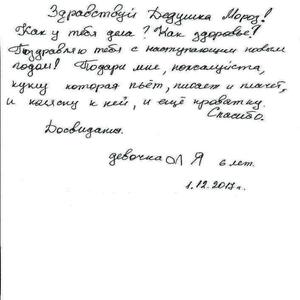 Здравствуй Дедушка Мороз!
Как у тебя дела? Как здоровье?
Поздравляю тебя с наступающим новым
годом! Подари мне, пожалуйста,
куклу которая пьёт, писает и плачет,
и коляску к ней, и ещё кроватку.
Спасибо.
Досвидания.
девочка Л Я 6 лет.
1.12.2017г.